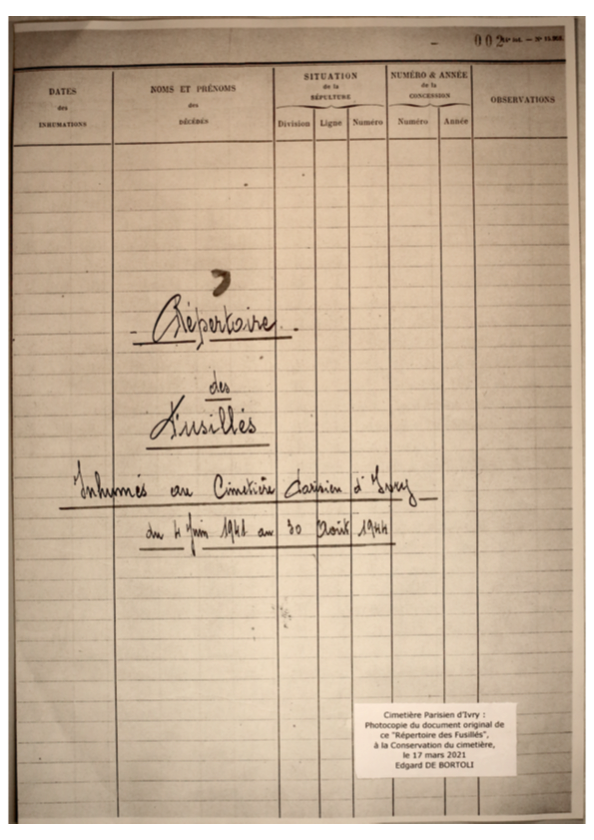 002
DATES
des
INHUMATIONS
NOMS ET PRÉNOMS
des
DÉCÉDÉS
SITUATION
de la
SÉPULTURE
Division Ligne Numéro
NUMÉRO & ANNÉE
de la
CONCESSION
Numéro Année
OBSERVATIONS
- Répertoire -
des
Fusillés
Inhumés au Cimetière Parisien d'Ivry
du 4 Juin 1941 au 30 Août 1944
Cimetière Parisien d'Ivry :
Photocopie du document original de
ce "Répertoire des Fusillés",
à la Conservation du cimetière,
le 17 mars 2021
Edgard DE BORTOLI